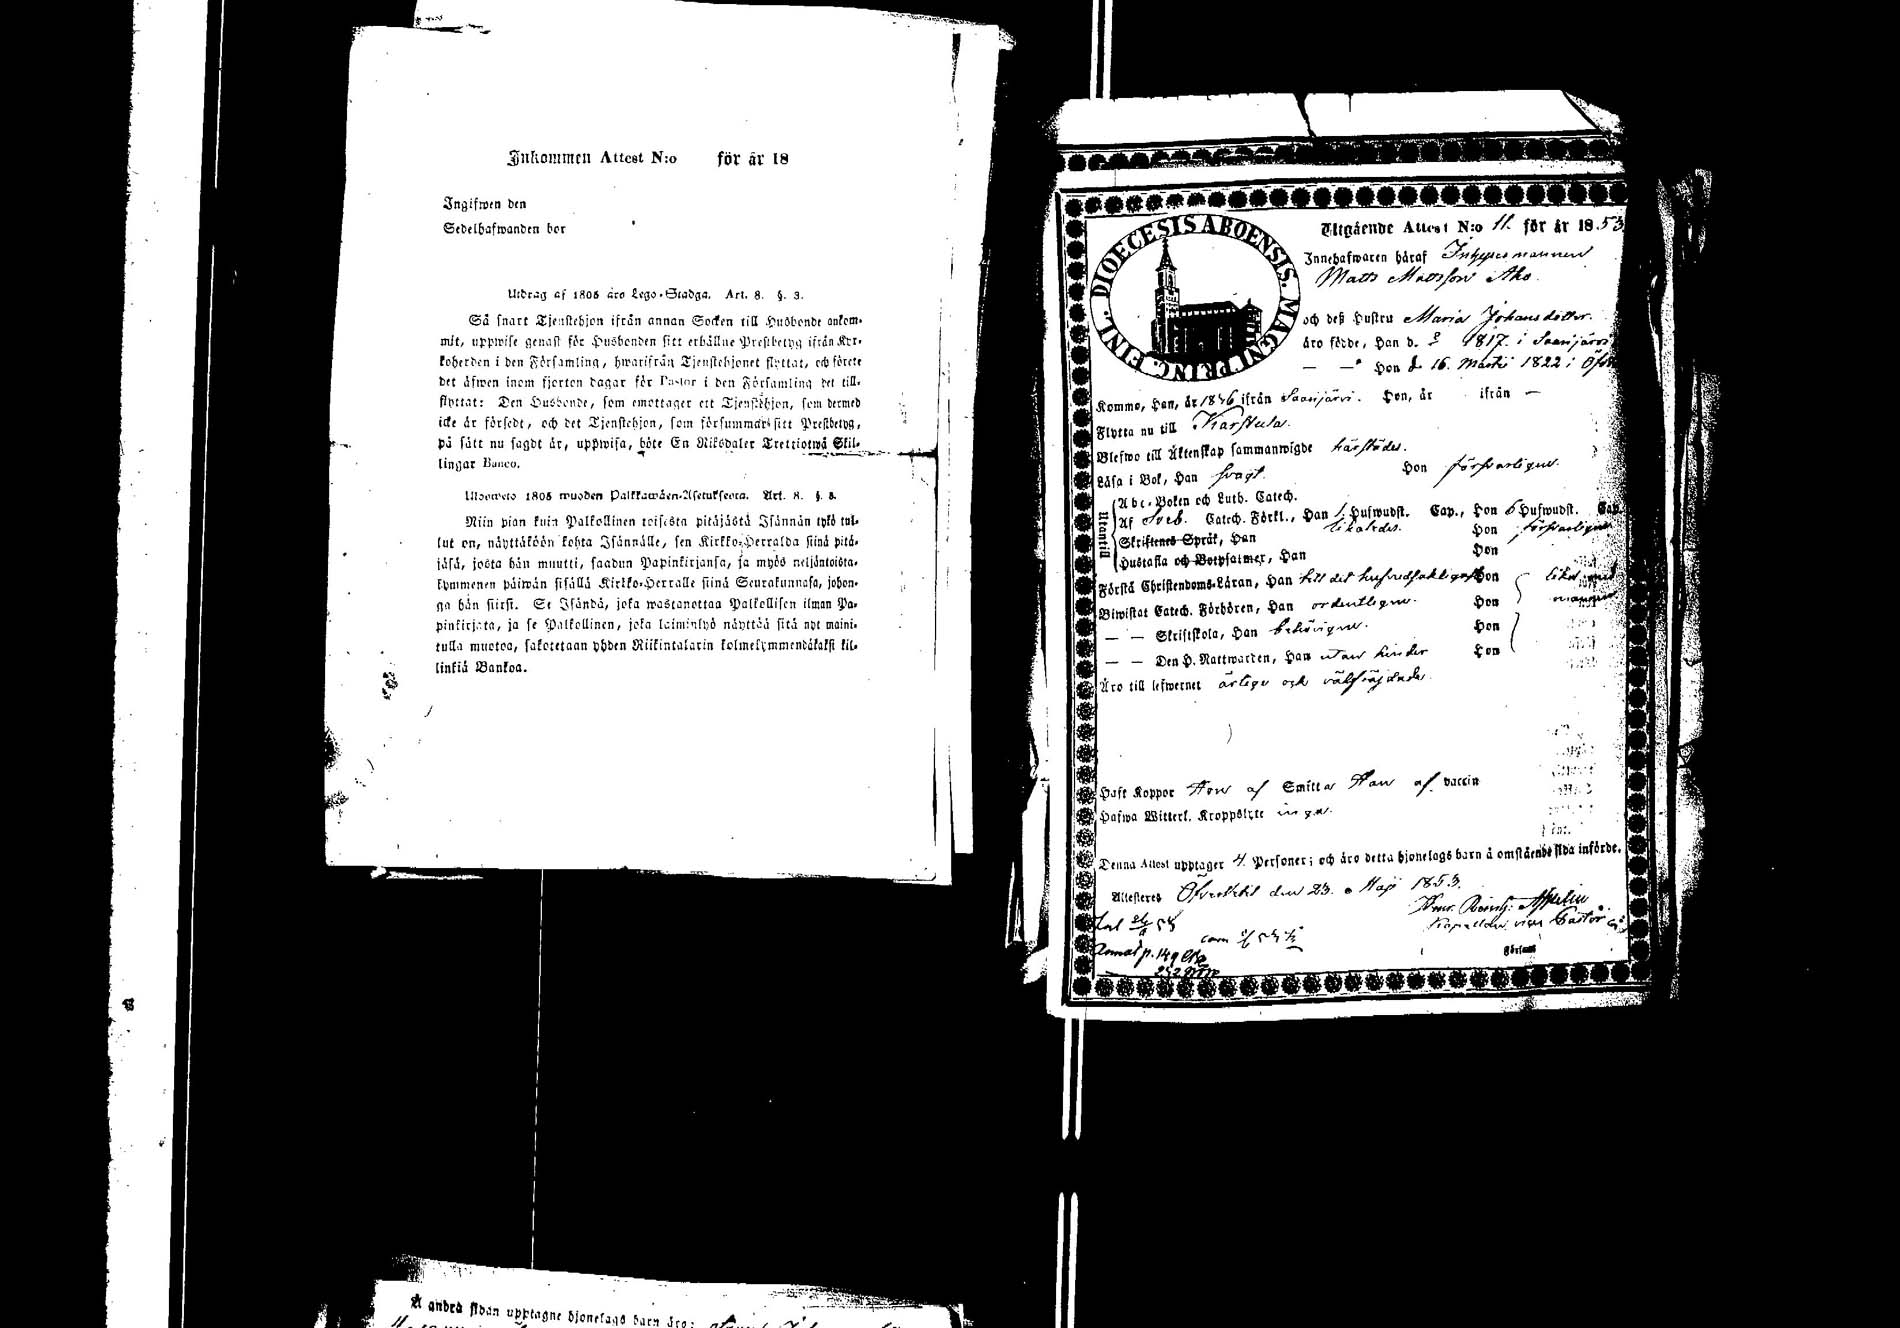 Inkommen Attest N:o för år 18
Ingifwen den
Sedelhafwanden bor
Utdrag af 1805 års Lego-Stadga. Art. 8. §. 3.
Så snart Tjenstehjon ifrån annan Socken till Husbonde ankom-
mit, uppwise genast för Husbonden sitt erhållne Prestbetyg ifrån Kyr-
koherden i den Församling, hwarifrån Tjenstehjonet flyttat, och förete
det äfwen inom fjorton dagar för Pastor i den Församling det till-
flyttat: Den Husbonde, som emottager ett Tjenstehjon, som dermed
icke är försedt, och det Tjenstehjon, som försummar sitt Prestbetyg,
på sätt nu sagdt är, uppwisa, böte En Riksdaler Trettiotwå Skil-
lingar Banco.
Ulosweto 1805 wuoden Palkkawäen-Asetuksesta. Art. 8. §. 3.
Niin pian kuin Palkollinen toisesta pitäjästä Isännän tykö tul-
lut on, näyttäköön kohta Isännälle, sen Kirkko-Herralda siinä pitä-
jäsä, josta hän muutti, saadun Papinkirjansa, ja myös neljäntoista-
kymmenen päiwän sisällä Kirkko-Herralle siinä Seurakunnasa, johon-
ga hän siirsi. Se Isändä, joka wastanottaa Palkollisen ilman Pa-
pinkirjata, ja se Palkollinen, joka laiminlyö näyttää sitä nyt maini-
tulla muotoa, sakotetaan yhden Riikintalarin kolmekymmendäkaksi kil-
linkiä Bankoa.
DIOECESIS ABOENSIS. MAGNI PRINC. FINL.
Utgående Attest N:o 11. för år 1853
Innehafwaren häraf Inhysesmannen
Matts Mattsson Aho.
och deß Hustru Maria Johansdotter.
äro födde, Han d. ? 1817. i Saarijärvi
— — Hon d. 16. Martii 1822 i
Komne, Han, år 1846 ifrån Saarijärvi. Hon, år ifrån —
Flytta nu till Karstula.
Blefwo till Äktenskap sammanwigde härstädes.
Läsa i Bok, Han svagt. Hon försvarligen.
Utantill
Abc-Boken och Luth. Catech.
Af Sveb. Catech. Förkl., Han 1. Hufwudst. Cap., Hon 6 Hufwudst. Cap.
Skriftenes Språk, Han likaledes. Hon försvarligen
Hustafla och Botpsalmer, Han Hon
Förstå Christendoms-Läran, Han till det hufvudsakligaste Hon
Biwistat Catech. Förhören, Han ordentligen. Hon
— — Skriftskola, Han behörigen. Hon
— — Den H. Nattwarden, Han utan hinder Hon
lika med
mannen
Äro till lefwernet ärliga och välfräjdade.
Haft Koppor Hon af Smitta Han af vaccin
Hafwa Witterl. Kroppslyte inga.
Denna Attest upptager 4. Personer; och äro detta hjonelags barn å omstående sida införde.
Attesteres den 23. Maji 1853.
Pastor
Församl
Annat p. 149
252
Å andra sidan upptagne hjonelags barn äro: